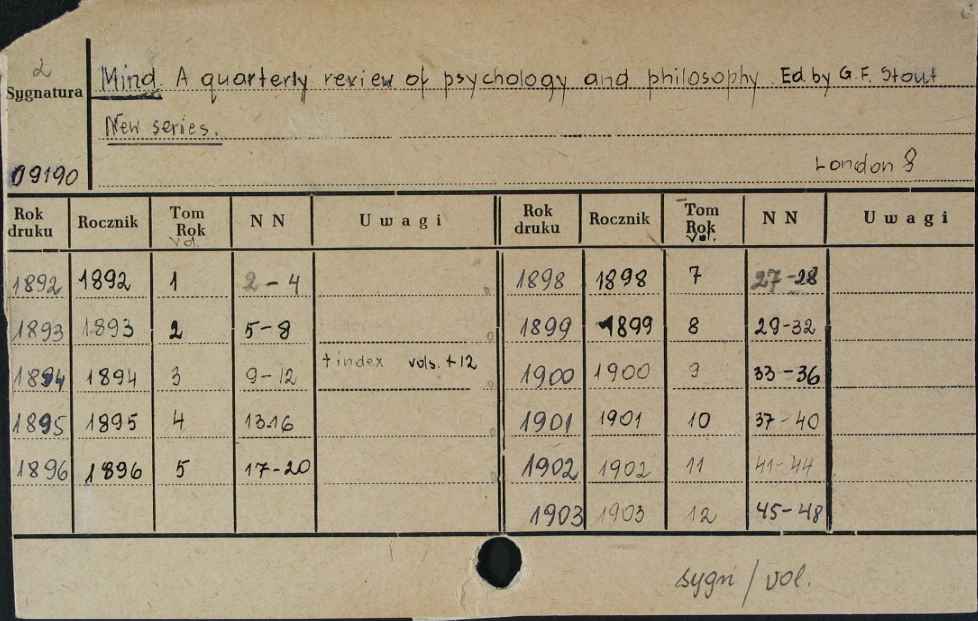 2
Sygnatura
09190
Mind. A quarterly review of psychology and philosophy. Ed. by G. F. Stout
New series.
London 8
Rok druku Rocznik Tom Rok Vol. N N Uwagi Rok druku Rocznik Tom Rok Vol. N N Uwagi
1892 1892 1 2-4 1898 1898 7 27-28
1893 1893 2 5-8 1899 1899 8 29-32
1894 1894 3 9-12 + index vols. 1-12 1900 1900 9 33-36
1895 1895 4 13-16 1901 1901 10 37-40
1896 1896 5 17-20 1902 1902 11 41-44
1903 1903 12 45-48
sygn / vol.